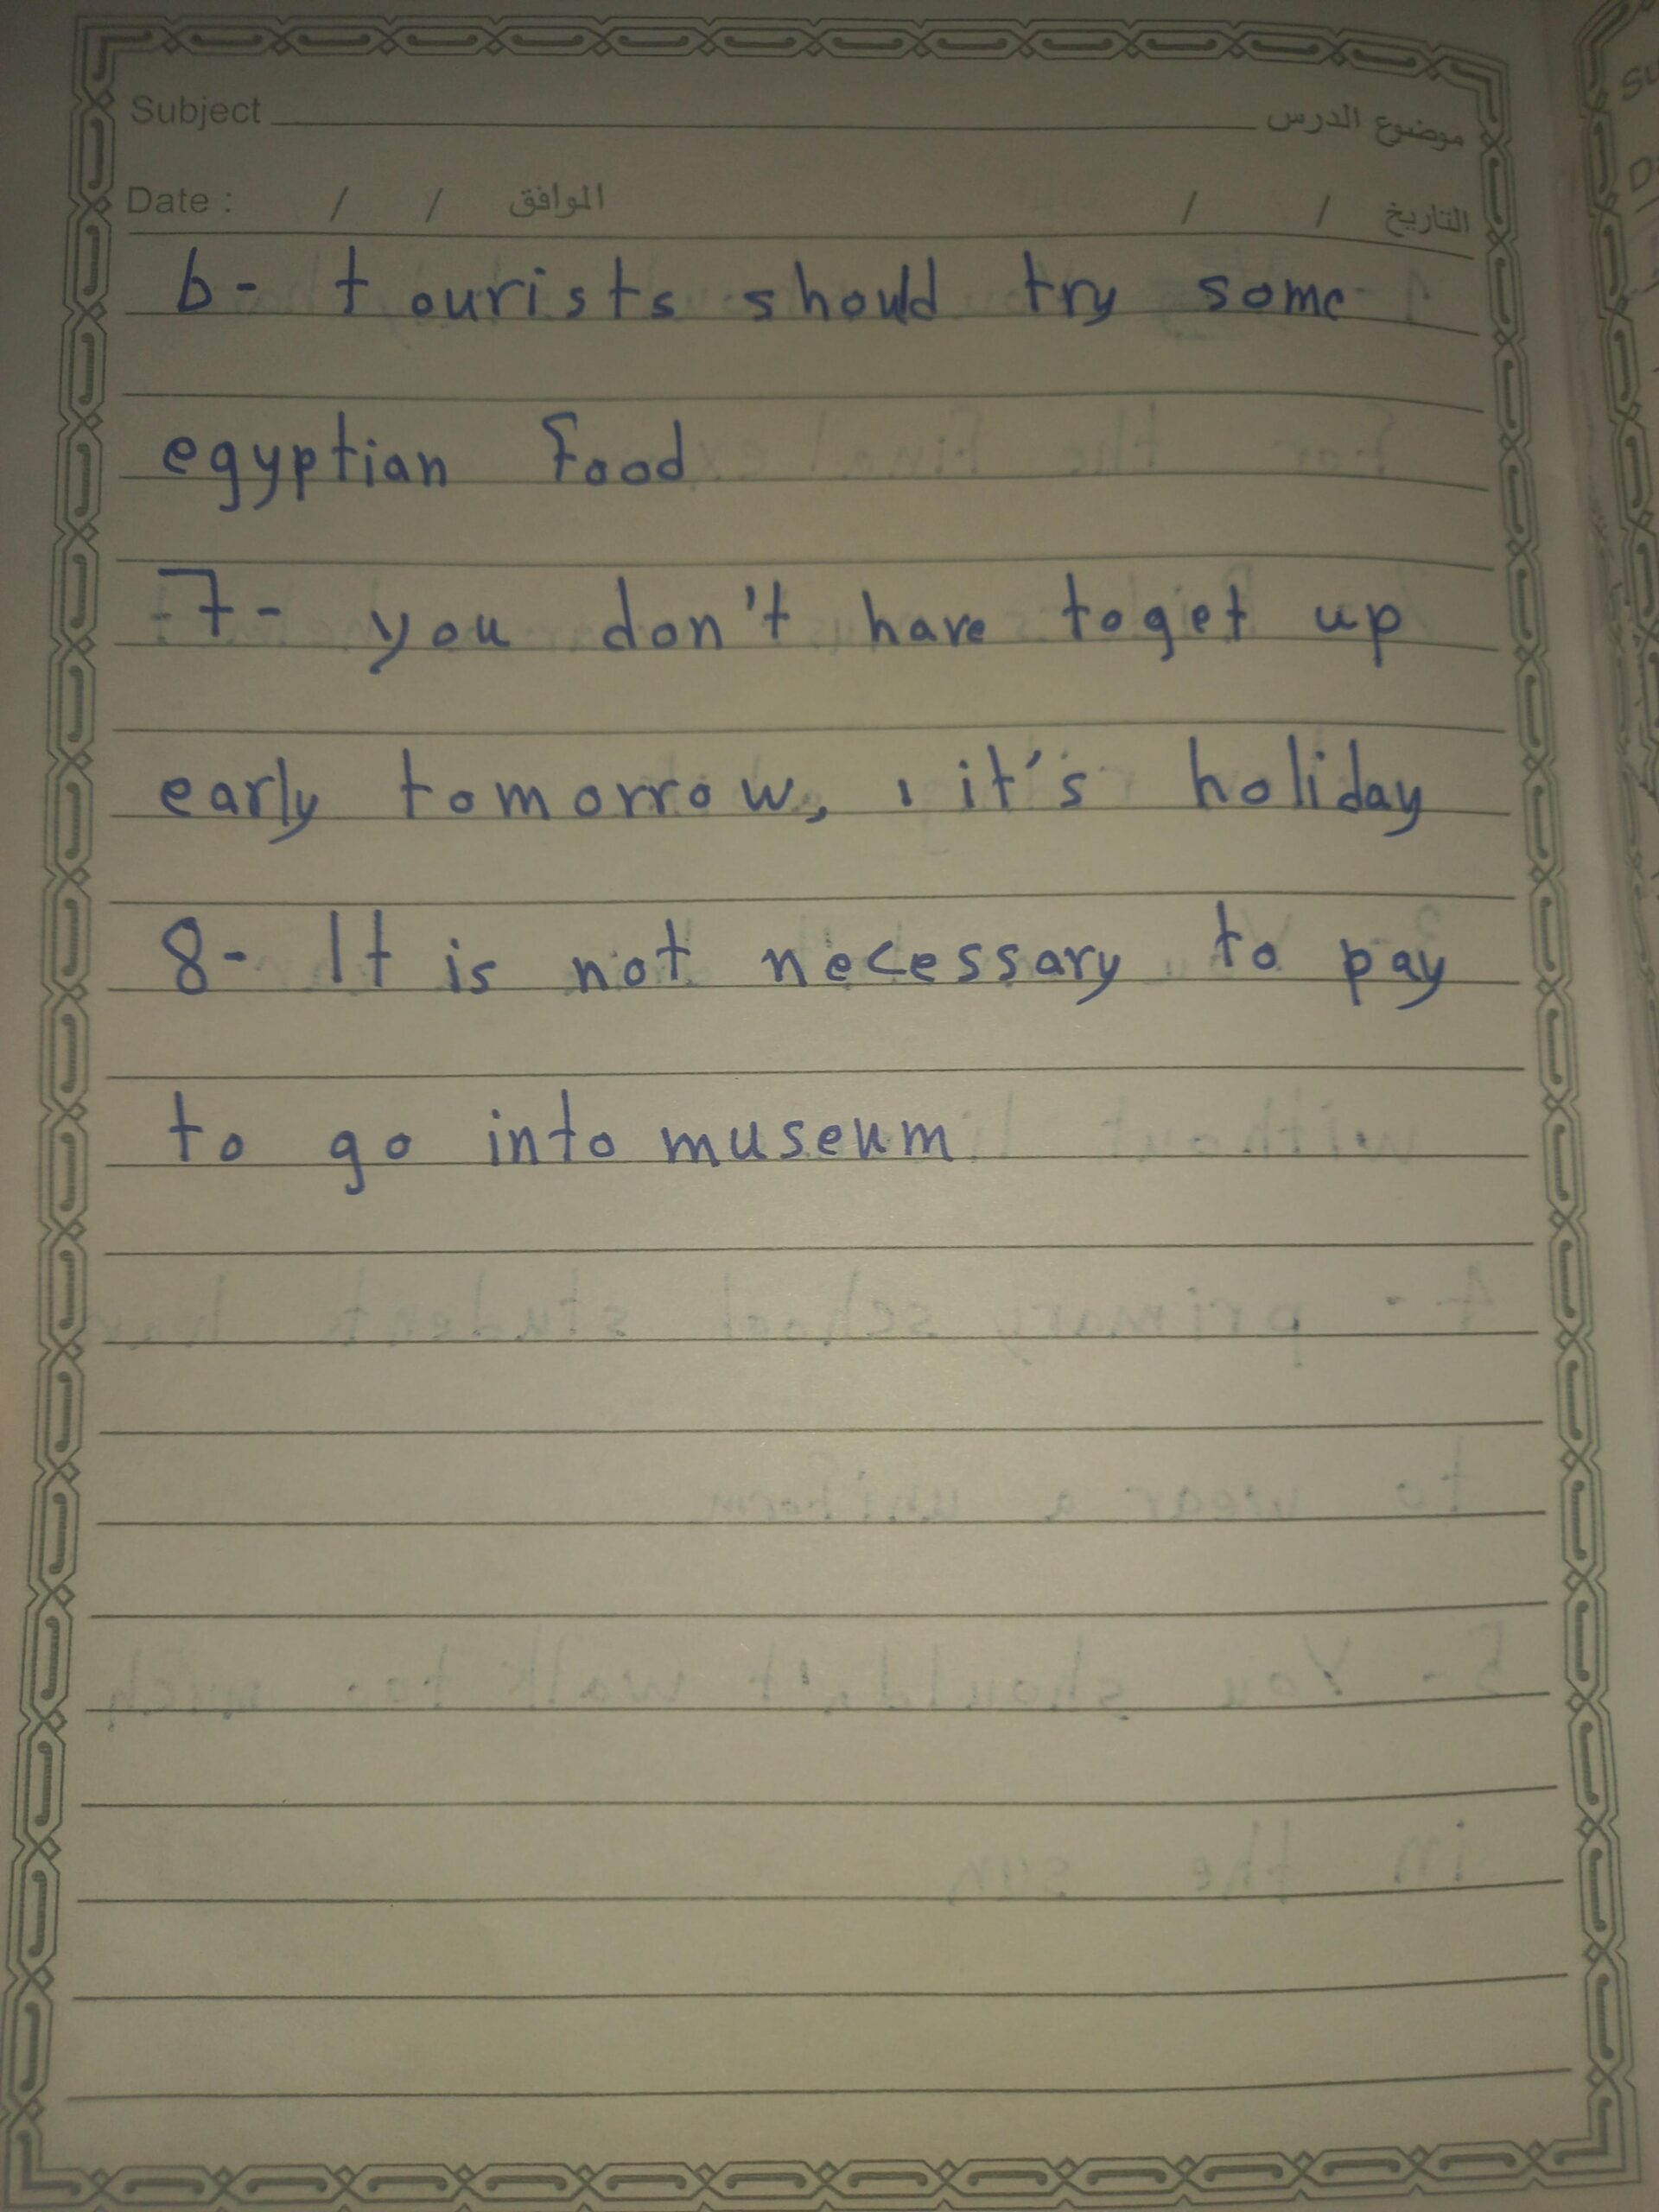 Subject موضوع الدرس
Date : / / الموافق / / التاريخ
6- tourists should try some
egyptian Food
7- you don't have toget up
early tomorrow, it's holiday
8- It is not necessary to pay
to go into museum